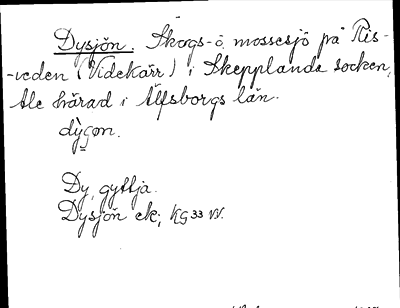 Dysjön. Skogs- o. mossesjö på Ris-
-veden (Videkärr) i Skepplanda socken,
Ale härad i Älfsborgs län.
dỳʂơn.
Dy, gyttja.
Dysjön ek; KG 33 VV.